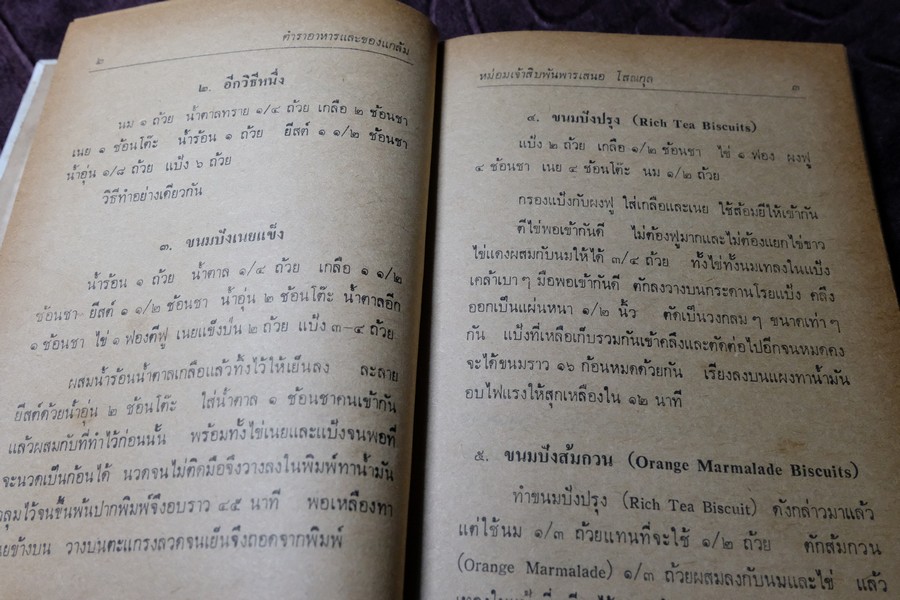 ๒
ตำราอาหารและของแกล้ม
๒. อีกวิธีหนึ่ง
นม ๑ ถ้วย น้ำตาลทราย ๑/๔ ถ้วย เกลือ ๒ ช้อนชา
เนย ๑ ช้อนโต๊ะ น้ำร้อน ๑ ถ้วย ยีสต์ ๑ ๑/๒ ช้อนชา
น้ำอุ่น ๑/๘ ถ้วย แป้ง ๖ ถ้วย
วิธีทำอย่างเดียวกัน
๓. ขนมปังเนยแข็ง
น้ำร้อน ๑ ถ้วย น้ำตาล ๑/๔ ถ้วย เกลือ ๑ ๑/๒
ช้อนชา ยีสต์ ๑ ๑/๒ ช้อนชา น้ำอุ่น ๒ ช้อนโต๊ะ น้ำตาลอีก
๑ ช้อนชา ไข่ ๑ ฟองตีฟู เนยแข็งป่น ๒ ถ้วย แป้ง ๓–๔ ถ้วย
ผสมน้ำร้อนน้ำตาลเกลือแล้วทิ้งไว้ให้เย็นลง ละลาย
ยีสต์ด้วยน้ำอุ่น ๒ ช้อนโต๊ะ ใส่น้ำตาล ๑ ช้อนชาคนเข้ากัน
แล้วผสมกับที่ทำไว้ก่อนนั้น พร้อมทั้งไข่เนยและแป้งจนพอที่
จะนวดเป็นก้อนได้ นวดจนไม่ติดมือจึงวางลงในพิมพ์ทาน้ำมัน
คลุมไว้จนขึ้นพ้นปากพิมพ์จึงอบราว ๔๕ นาที พอเหลืองทา
เนยข้างบน วางบนตะแกรงลวดจนเย็นจึงถอดจากพิมพ์
หม่อมเจ้าสิบพันพารเสนอ โสณกุล
๓
๔. ขนมปังปรุง (Rich Tea Biscuits)
แป้ง ๒ ถ้วย เกลือ ๑/๒ ช้อนชา ไข่ ๑ ฟอง ผงฟู
๔ ช้อนชา เนย ๔ ช้อนโต๊ะ นม ๑/๒ ถ้วย
กรองแป้งกับผงฟู ใส่เกลือและเนย ใช้ส้อมยีให้เข้ากัน
ตีไข่พอเข้ากันดี ไม่ต้องฟูมากและไม่ต้องแยกไข่ขาว
ไข่แดงผสมกับนมให้ได้ ๓/๔ ถ้วย ทั้งไข่ทั้งนมเทลงในแป้ง
เคล้าเบา ๆ มือพอเข้ากันดี ตักลงวางบนกระดานโรยแป้ง คลึง
ออกเป็นแผ่นหนา ๑/๒ นิ้ว ตัดเป็นวงกลม ๆ ขนาดเท่า ๆ
กัน แป้งที่เหลือเก็บรวมกันเข้าคลึงและตัดต่อไปอีกจนหมดคง
จะได้ขนมราว ๑๖ ก้อนหมดด้วยกัน เรียงลงบนแผงทาน้ำมัน
อบไฟแรงให้สุกเหลืองใน ๑๒ นาที
๕. ขนมปังส้มกวน (Orange Marmalade Biscuits)
ทำขนมปังปรุง (Rich Tea Biscuit) ดังกล่าวมาแล้ว
แต่ใช้นม ๑/๓ ถ้วยแทนที่จะใช้ ๑/๒ ถ้วย ตักส้มกวน
(Orange Marmalade) ๑/๓ ถ้วยผสมลงกับนมและไข่ แล้ว